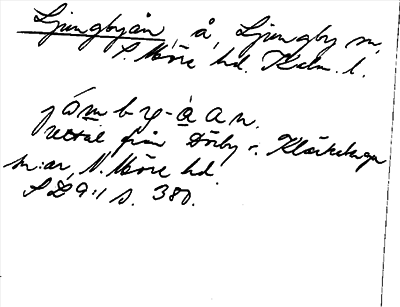 Ljungbyån, å, Ljungby sn,
S. Möre hd. Kalm. l.
jómby-àan.
uttal från Dörby o. Kläckeberga
sn:ar, N. Möre hd.
SD 9:1 s. 380.